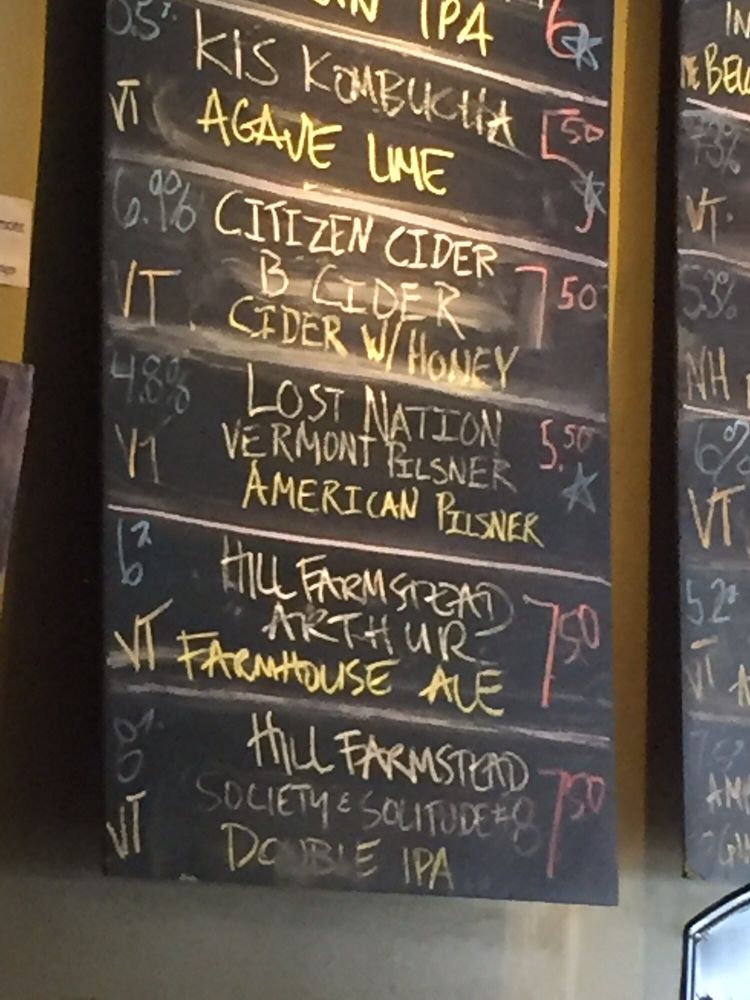 IPA 6
0.5%
KIS KOMBUCHA
VT AGAVE LIME 5.50
6.9% CITIZEN CIDER
B CIDER 7.50
VT CIDER W/ HONEY
4.8% LOST NATION
VERMONT PILSNER 5.50
VT AMERICAN PILSNER
6% HILL FARMSTEAD
ARTHUR 7.50
VT FARMHOUSE ALE
8% HILL FARMSTEAD
SOCIETY & SOLITUDE #8 7.50
VT DOUBLE IPA
IN
VT
5.3%
NH
6%
VT
5.2%
VT